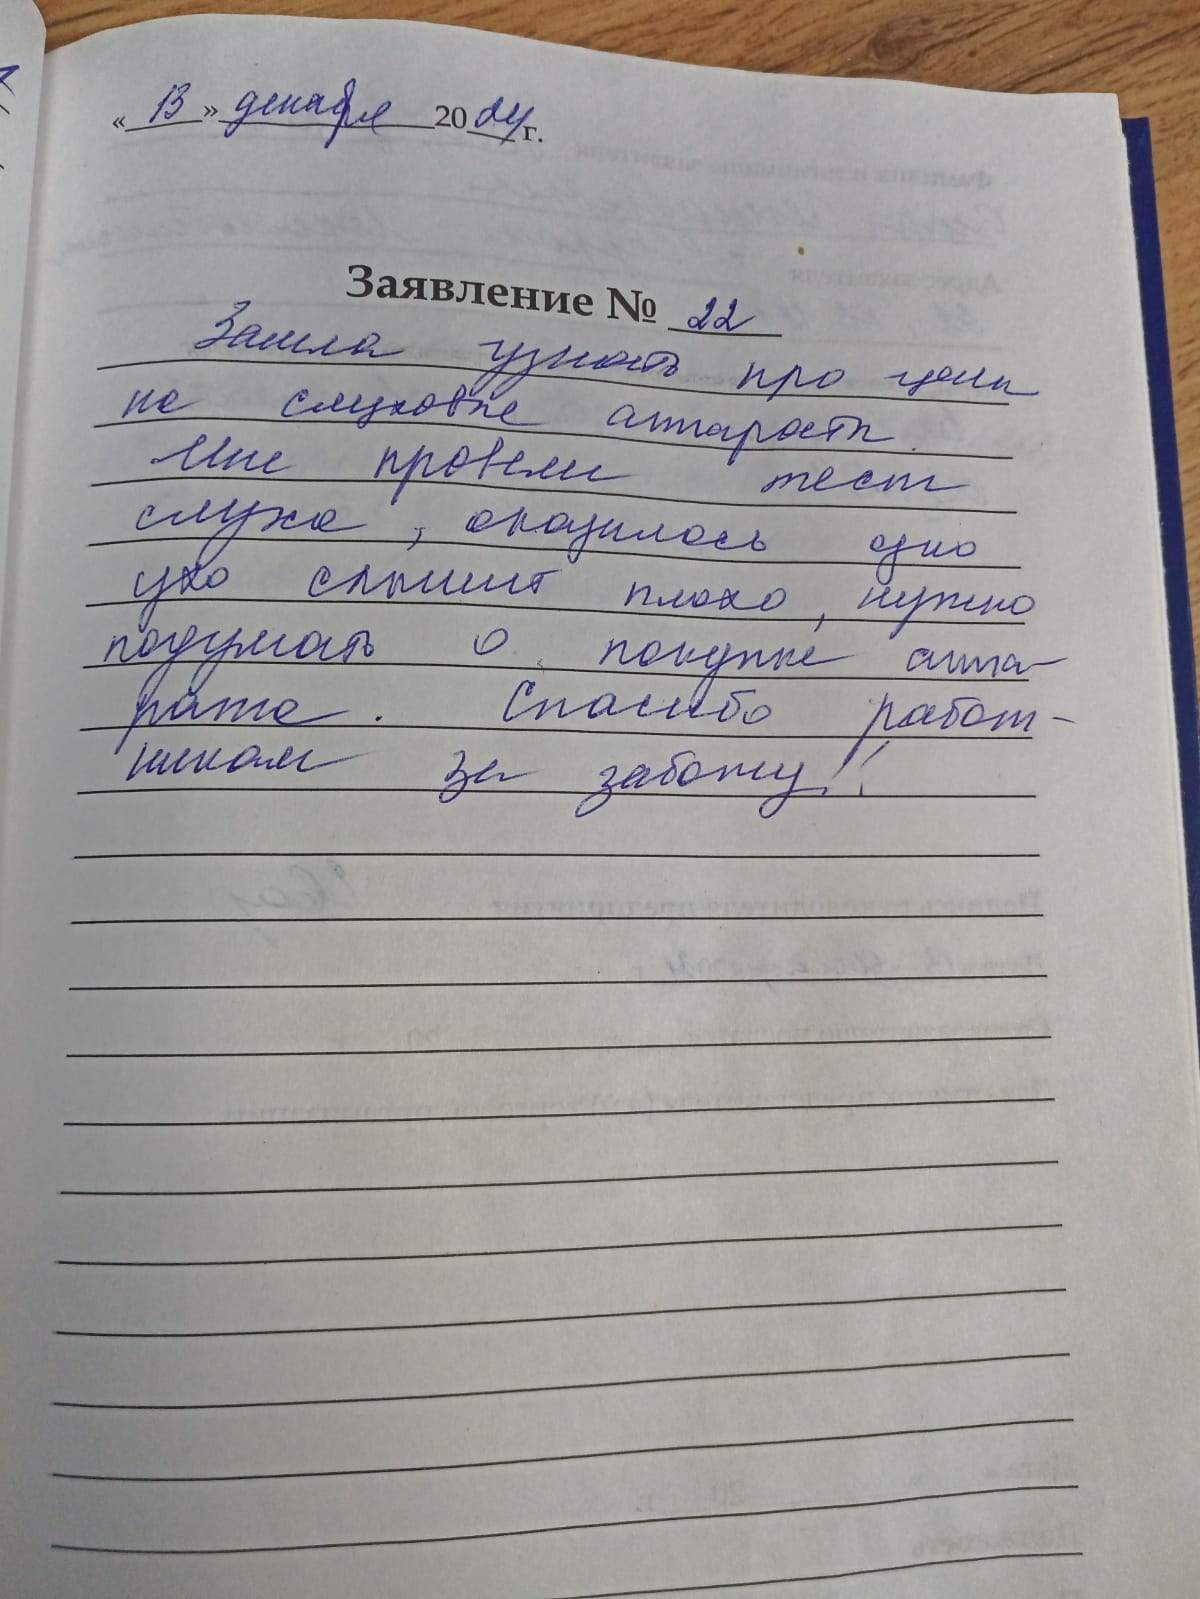 « 13 » декабря 2024 г.
Заявление № 22
Зашла узнать про цены
на слуховые аппараты.
Мне провели тест
слуха, оказалось одно
ухо слышит плохо, нужно
подумать о покупке аппа-
рата. Спасибо работ-
никам за заботу!!